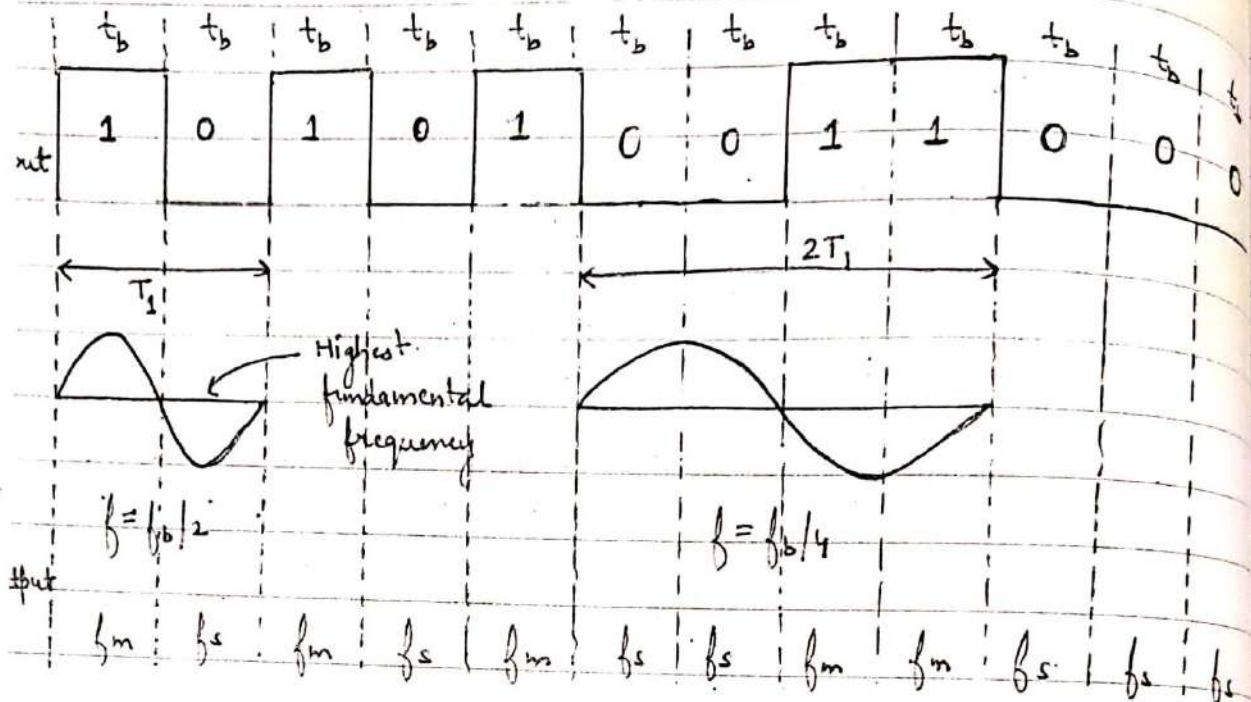 t_b t_b t_b t_b t_b t_b t_b t_b t_b t_b t_b
1 0 1 0 1 0 0 1 1 0 0 0
T_1 2T_1
Highest
fundamental
frequency
f = f_b/2 f = f_b/4
fm fs fm fs fm fs fs fm fm fs fs fs